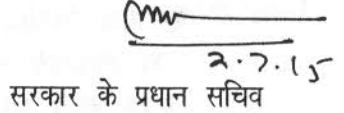 2.7.15
सरकार के प्रधान सचिव